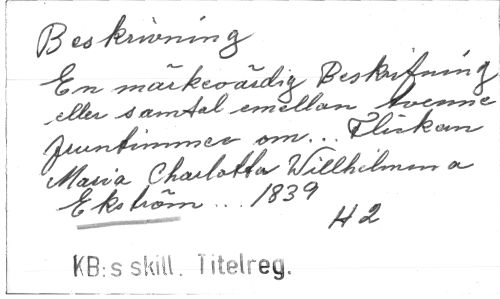 Beskrivning
En märkevärdig Beskrifning
eller samtal emellan tvenne
fruntimmer om... Flickan
Maria Charlotta Willhelmina
Ekström ... 1839
H2
KB:s skill. Titelreg.